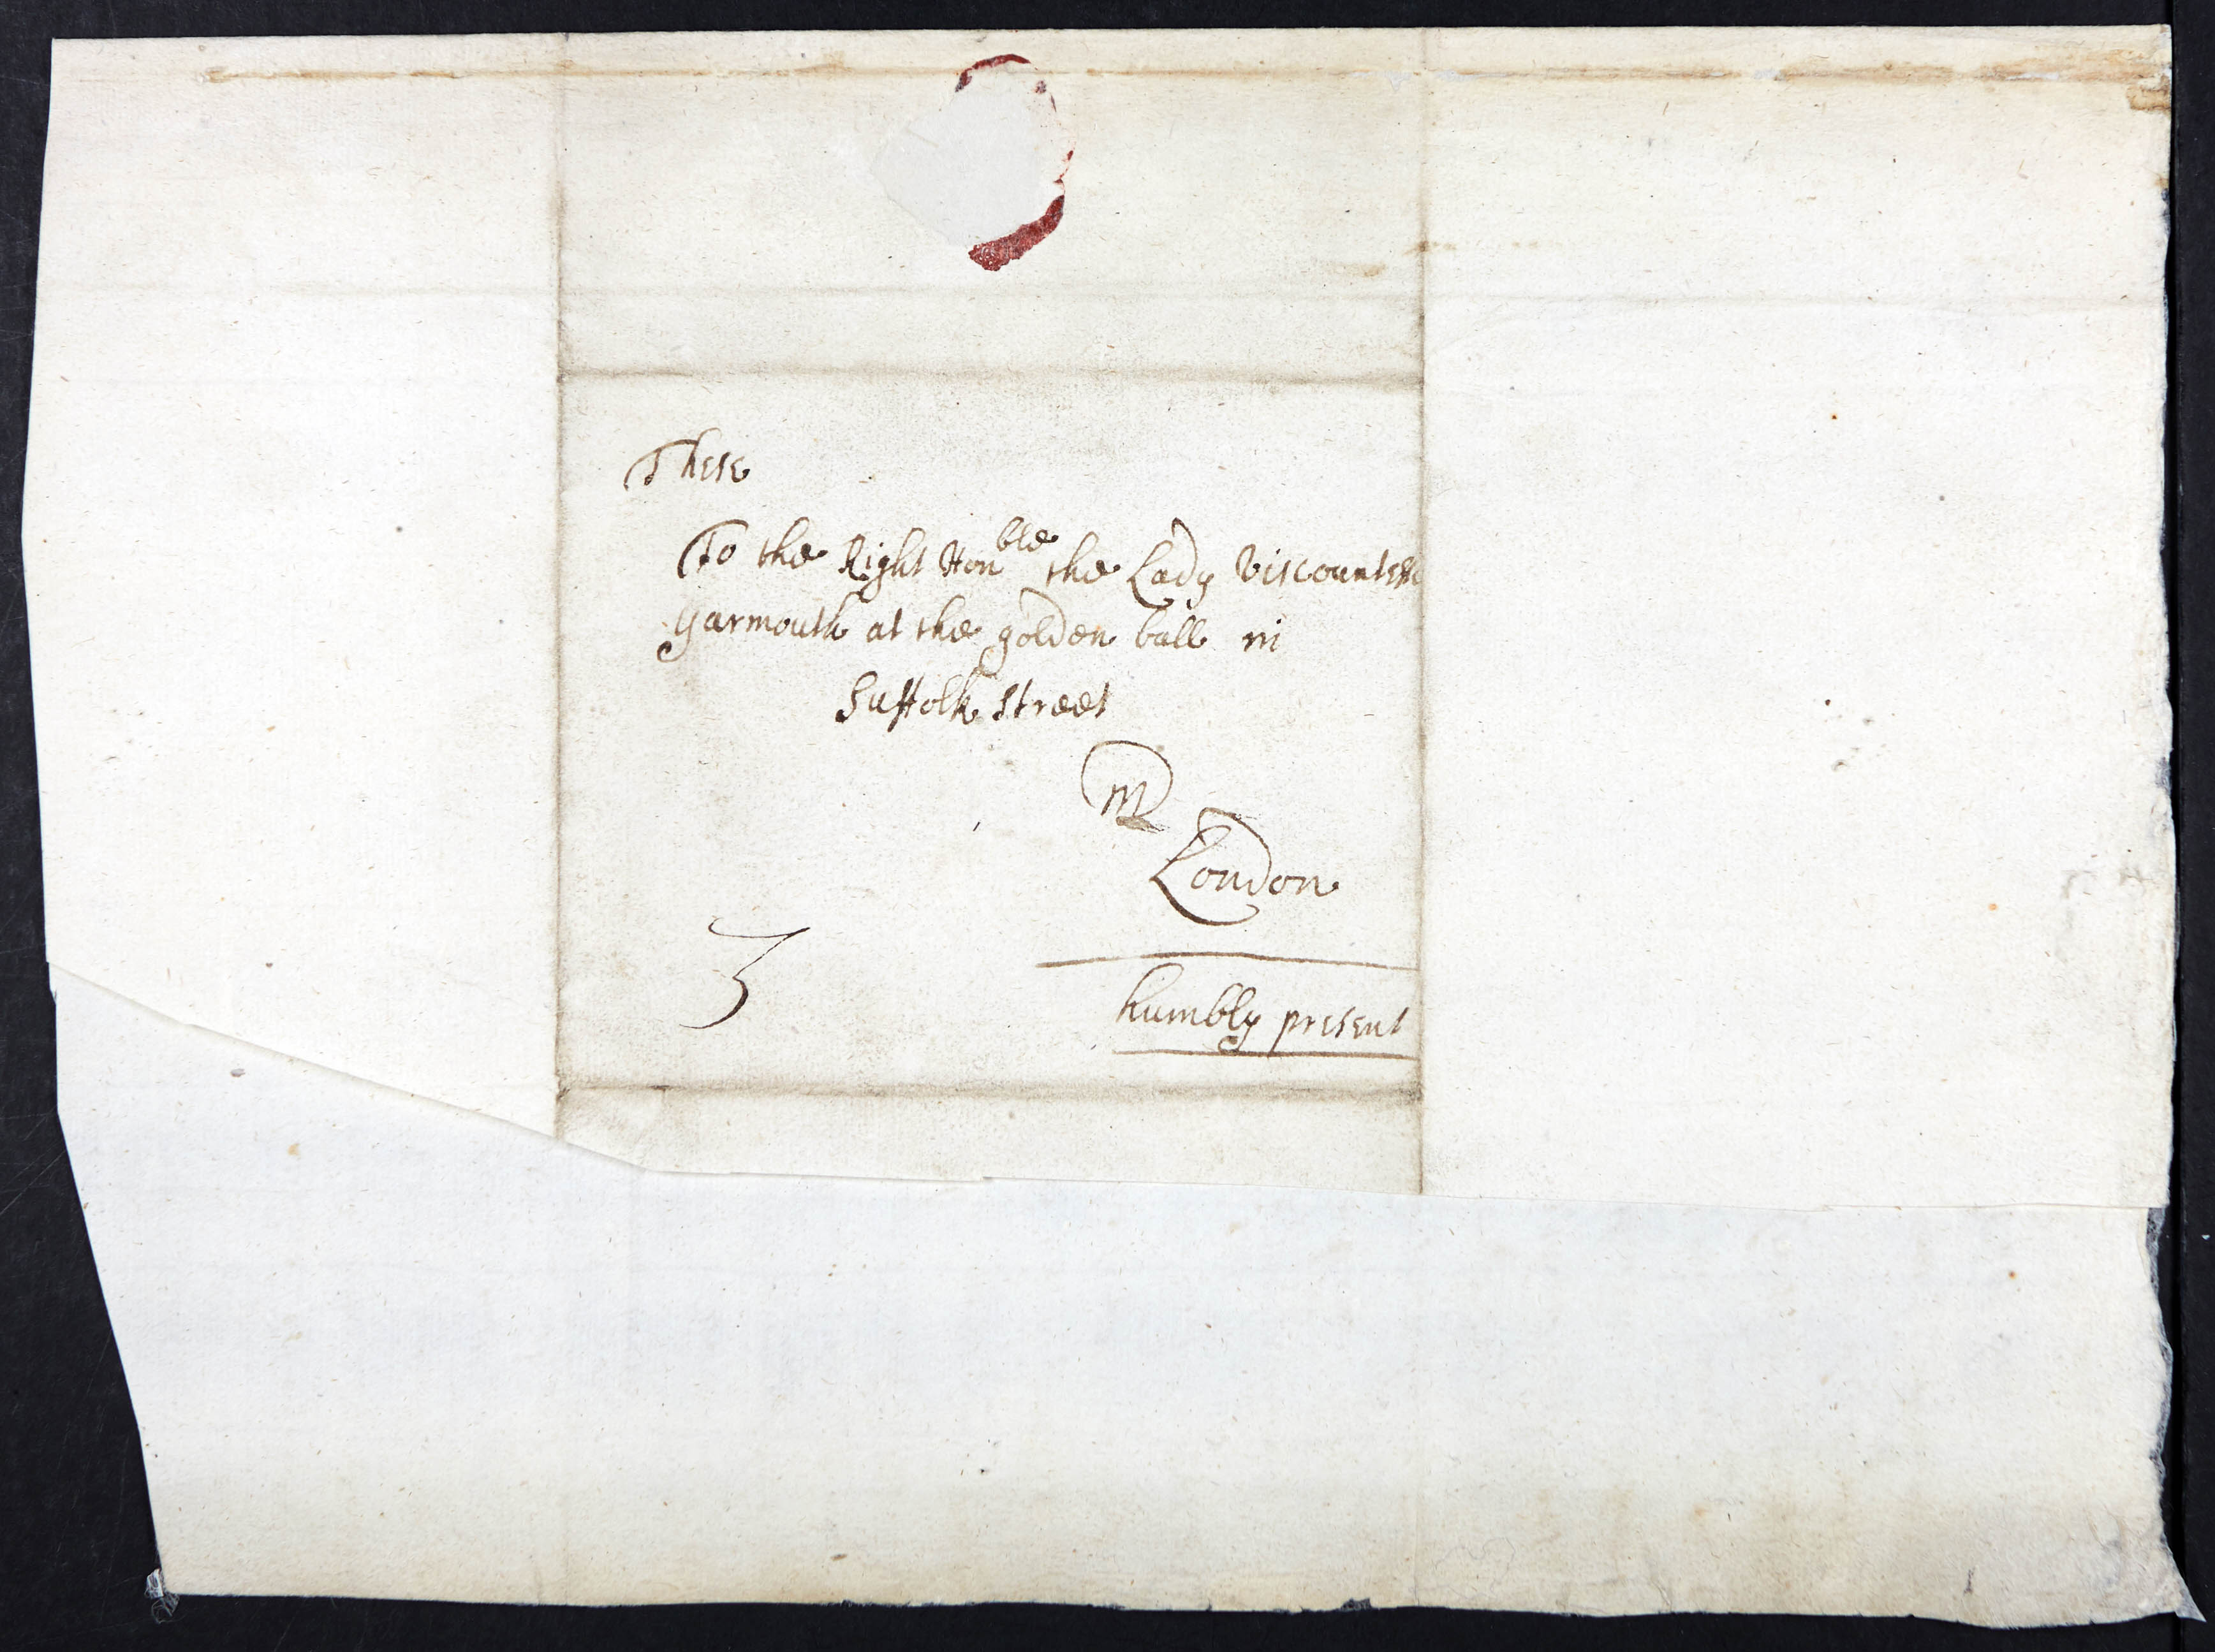 These
To the Right Honble the Lady Viscountess
Yarmouth at the golden ball in
Suffolk Street
in
London
3
humbly present